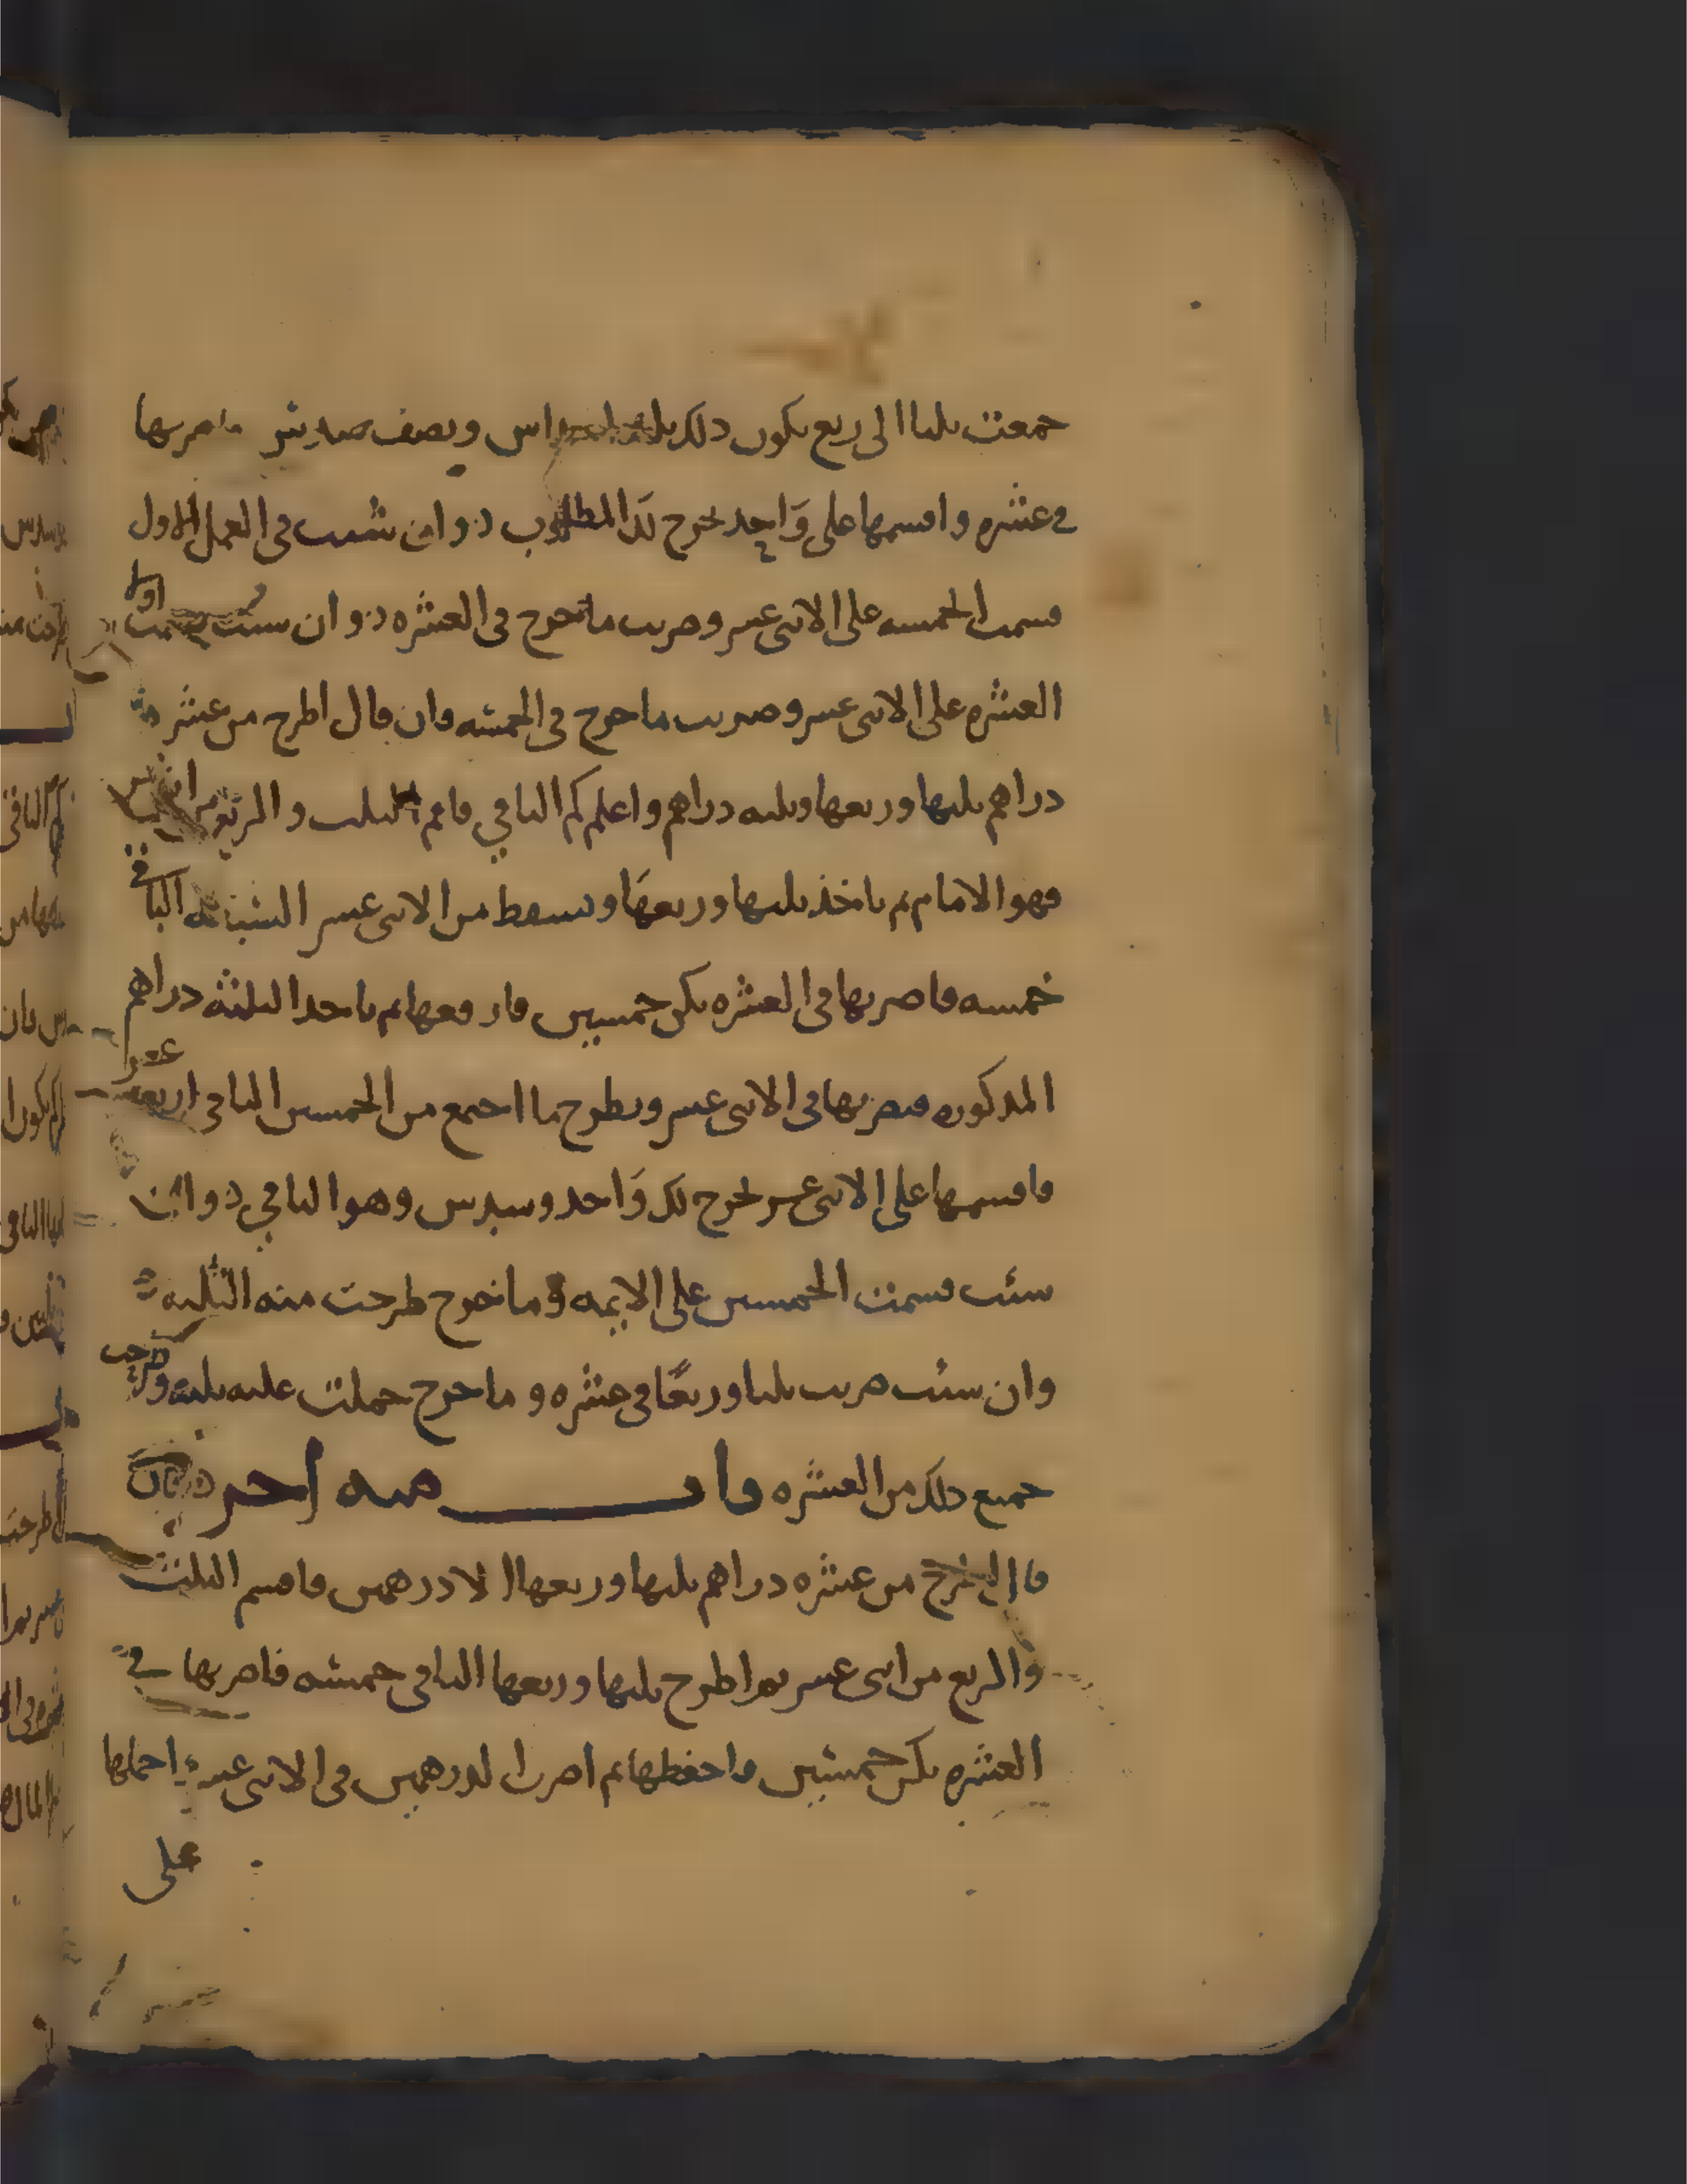 جمعت ثلثا الى ربع يكون ذلك ثلثه اسداس ونصف سدس فاضربها
في عشره واقسمها على واحد يخرج لك المطلوب وان شئت في العمل الاول
قسمت الخمسه على الاثنى عشر وضربت ما يخرج في العشره وان شئت قسمت اولا
العشره على الاثنى عشر وضربت ما خرج في الخمسه وان قال اطرح من عشره
دراهم ثلثها وربعها وثلثه دراهم واعلم كم الباقي فاقم الثلث والربع من اثنى عشر
فهو الامام ثم ياخذ ثلثها وربعها وتسقط من الاثنى عشر السبعه الباقي
خمسه فاضربها في العشره يكن خمسين فارفعها ثم ياخذ الثلثه دراهم
المذكوره فتضربها في الاثنى عشر وتطرح ما اجتمع من الخمسين الباقي اربعه عشر
فاقسمها على الاثنى عشر يخرج لك واحد وسدس وهو الباقي وان
شئت قسمت الخمسين على الايمه وما يخرج طرحت منه الثلثه
وان شئت ضربت ثلثا وربعا في عشره وما خرج حملت عليه ثلثه وطرحت
جميع ذلك من العشره باب منه اخر فان
قال اطرح من عشره دراهم ثلثها وربعها الا درهمين فاقسم الثلث
والربع من اثنى عشر ثم اطرح ثلثها وربعها الباقي خمسه فاضربها في
العشره يكن خمسين فاحفظها ثم اضرب الدرهمين في الاثنى عشر احملها
على